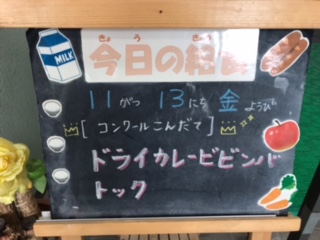 MILK
きょう きゅう
今日の給食
11がつ 13にち 金ようび
[コンクールこんだて]
ドライカレービビンバ
トック